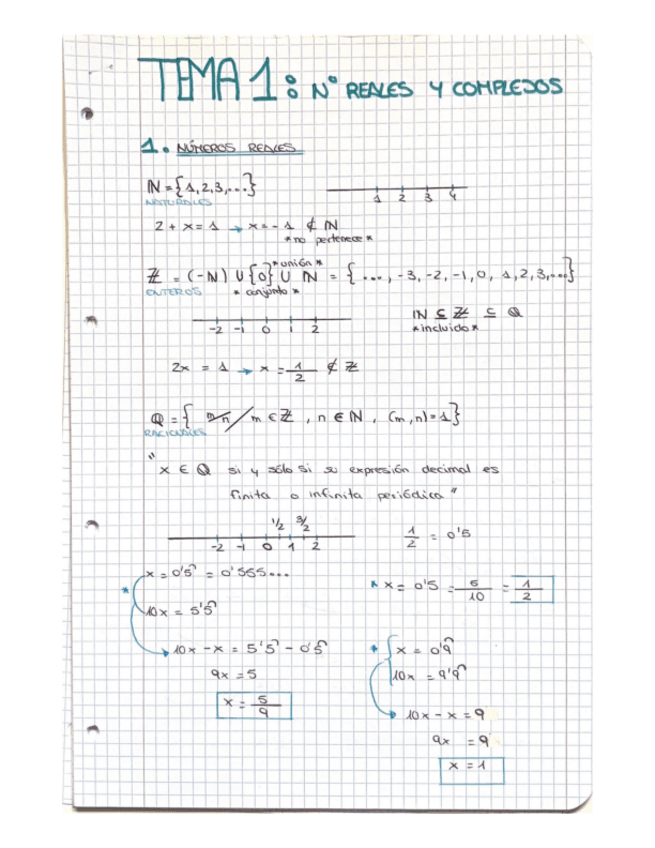 TEMA 1: Nº REALES Y COMPLEJOS
1. NÚMEROS REALES
ℕ = {1, 2, 3, ...}
NATURALES
1 2 3 4
2 + x = 1 → x = -1 ∉ ℕ
*no pertenece*
*unión*
ℤ = (-ℕ) ∪ {0} ∪ ℕ = {..., -3, -2, -1, 0, 1, 2, 3, ...}
ENTEROS
*conjunto*
-2 -1 0 1 2
ℕ ⊆ ℤ ⊆ ℚ
*incluido*
2x = 1 → x = 1/2 ∉ ℤ
ℚ = { m/n / m ∈ ℤ, n ∈ ℕ, (m, n) = 1}
RACIONALES
"x ∈ ℚ si y sólo si su expresión decimal es
finita o infinita periódica"
1/2 3/2
-2 -1 0 1 2
1/2 = 0'5
* x = 0'5̂ = 0'555...
10x = 5'5̂
10x - x = 5'5̂ - 0'5̂
9x = 5
x = 5/9
* x = 0'5 = 5/10 = 1/2
* x = 0'9̂
10x = 9'9̂
10x - x = 9
9x = 9
x = 1